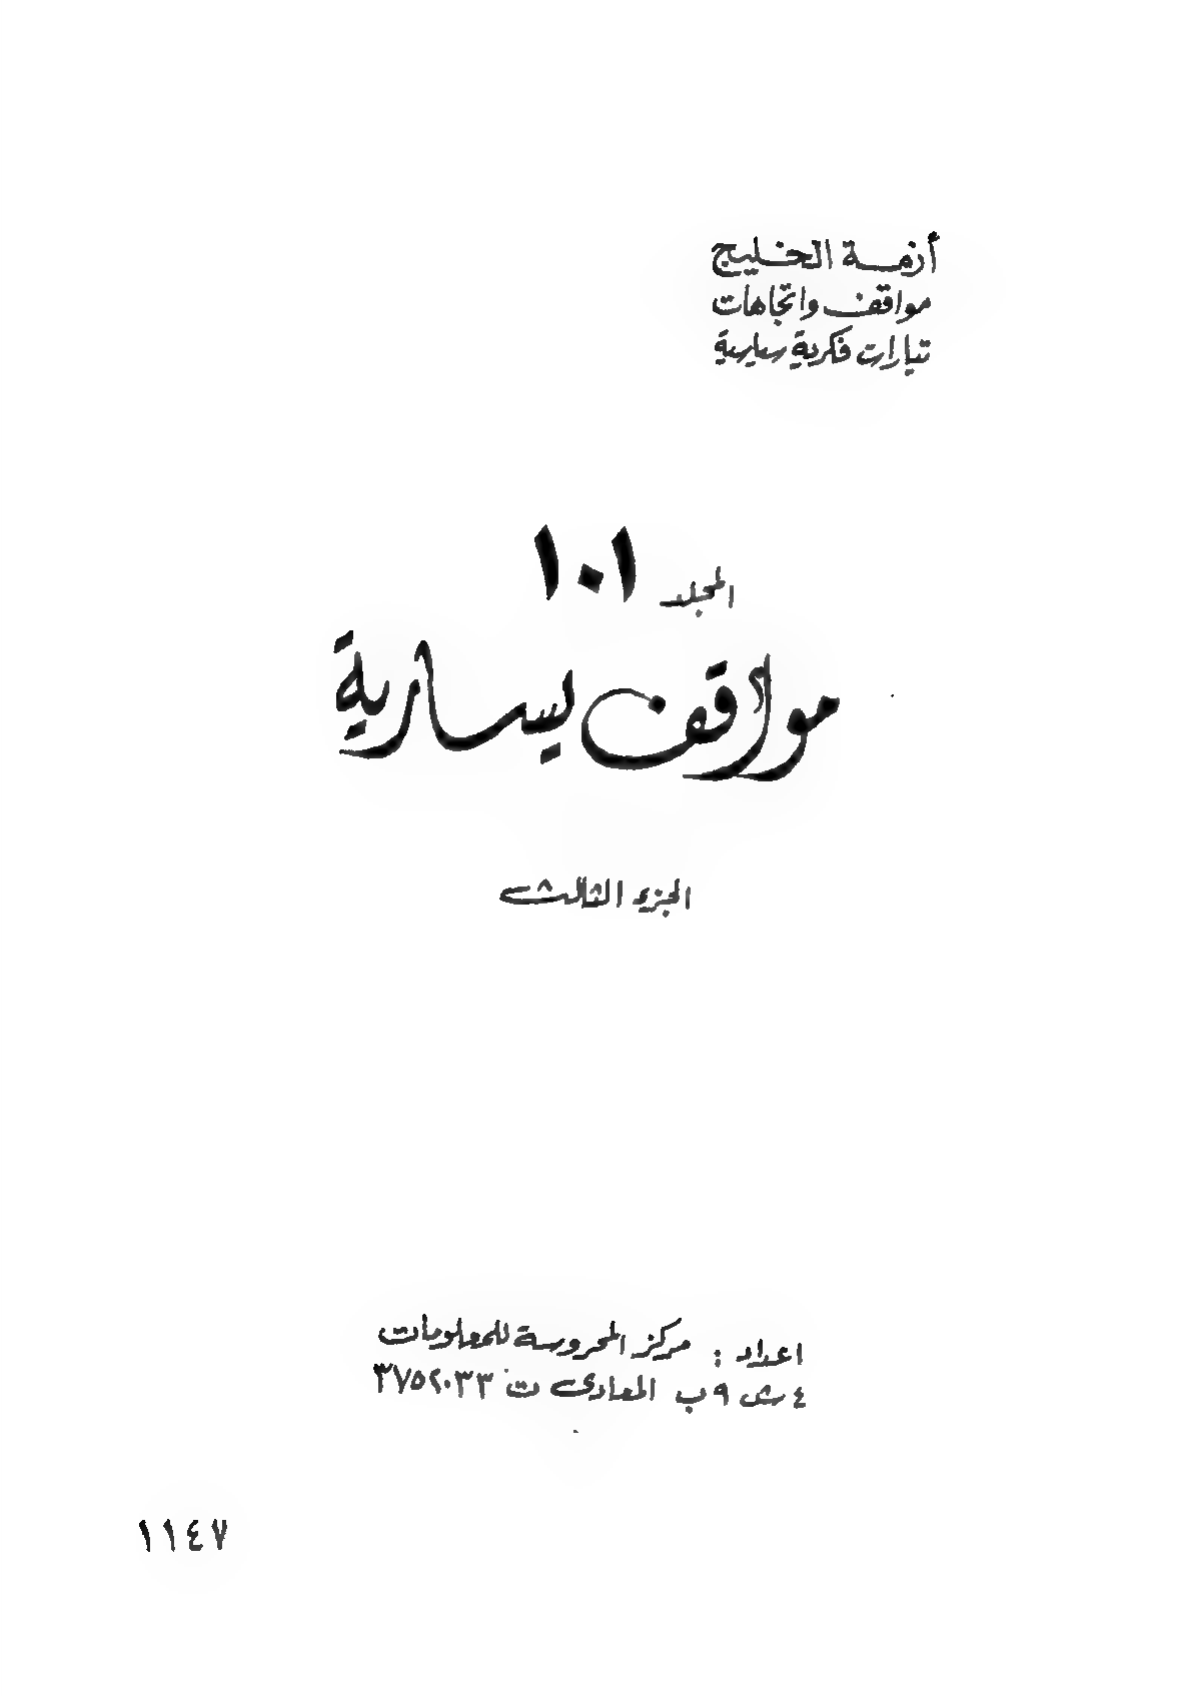 أزمة الخليج
مواقف واتجاهات
تيارات فكرية سياسية
المجلد ١٠١
مواقف يسارية
الجزء الثالث
اعداد : مركز المحروسة للمعلومات
٤ ش ٩ب المعادى ت ٣٧٥٢٠٣٣
١١٤٧